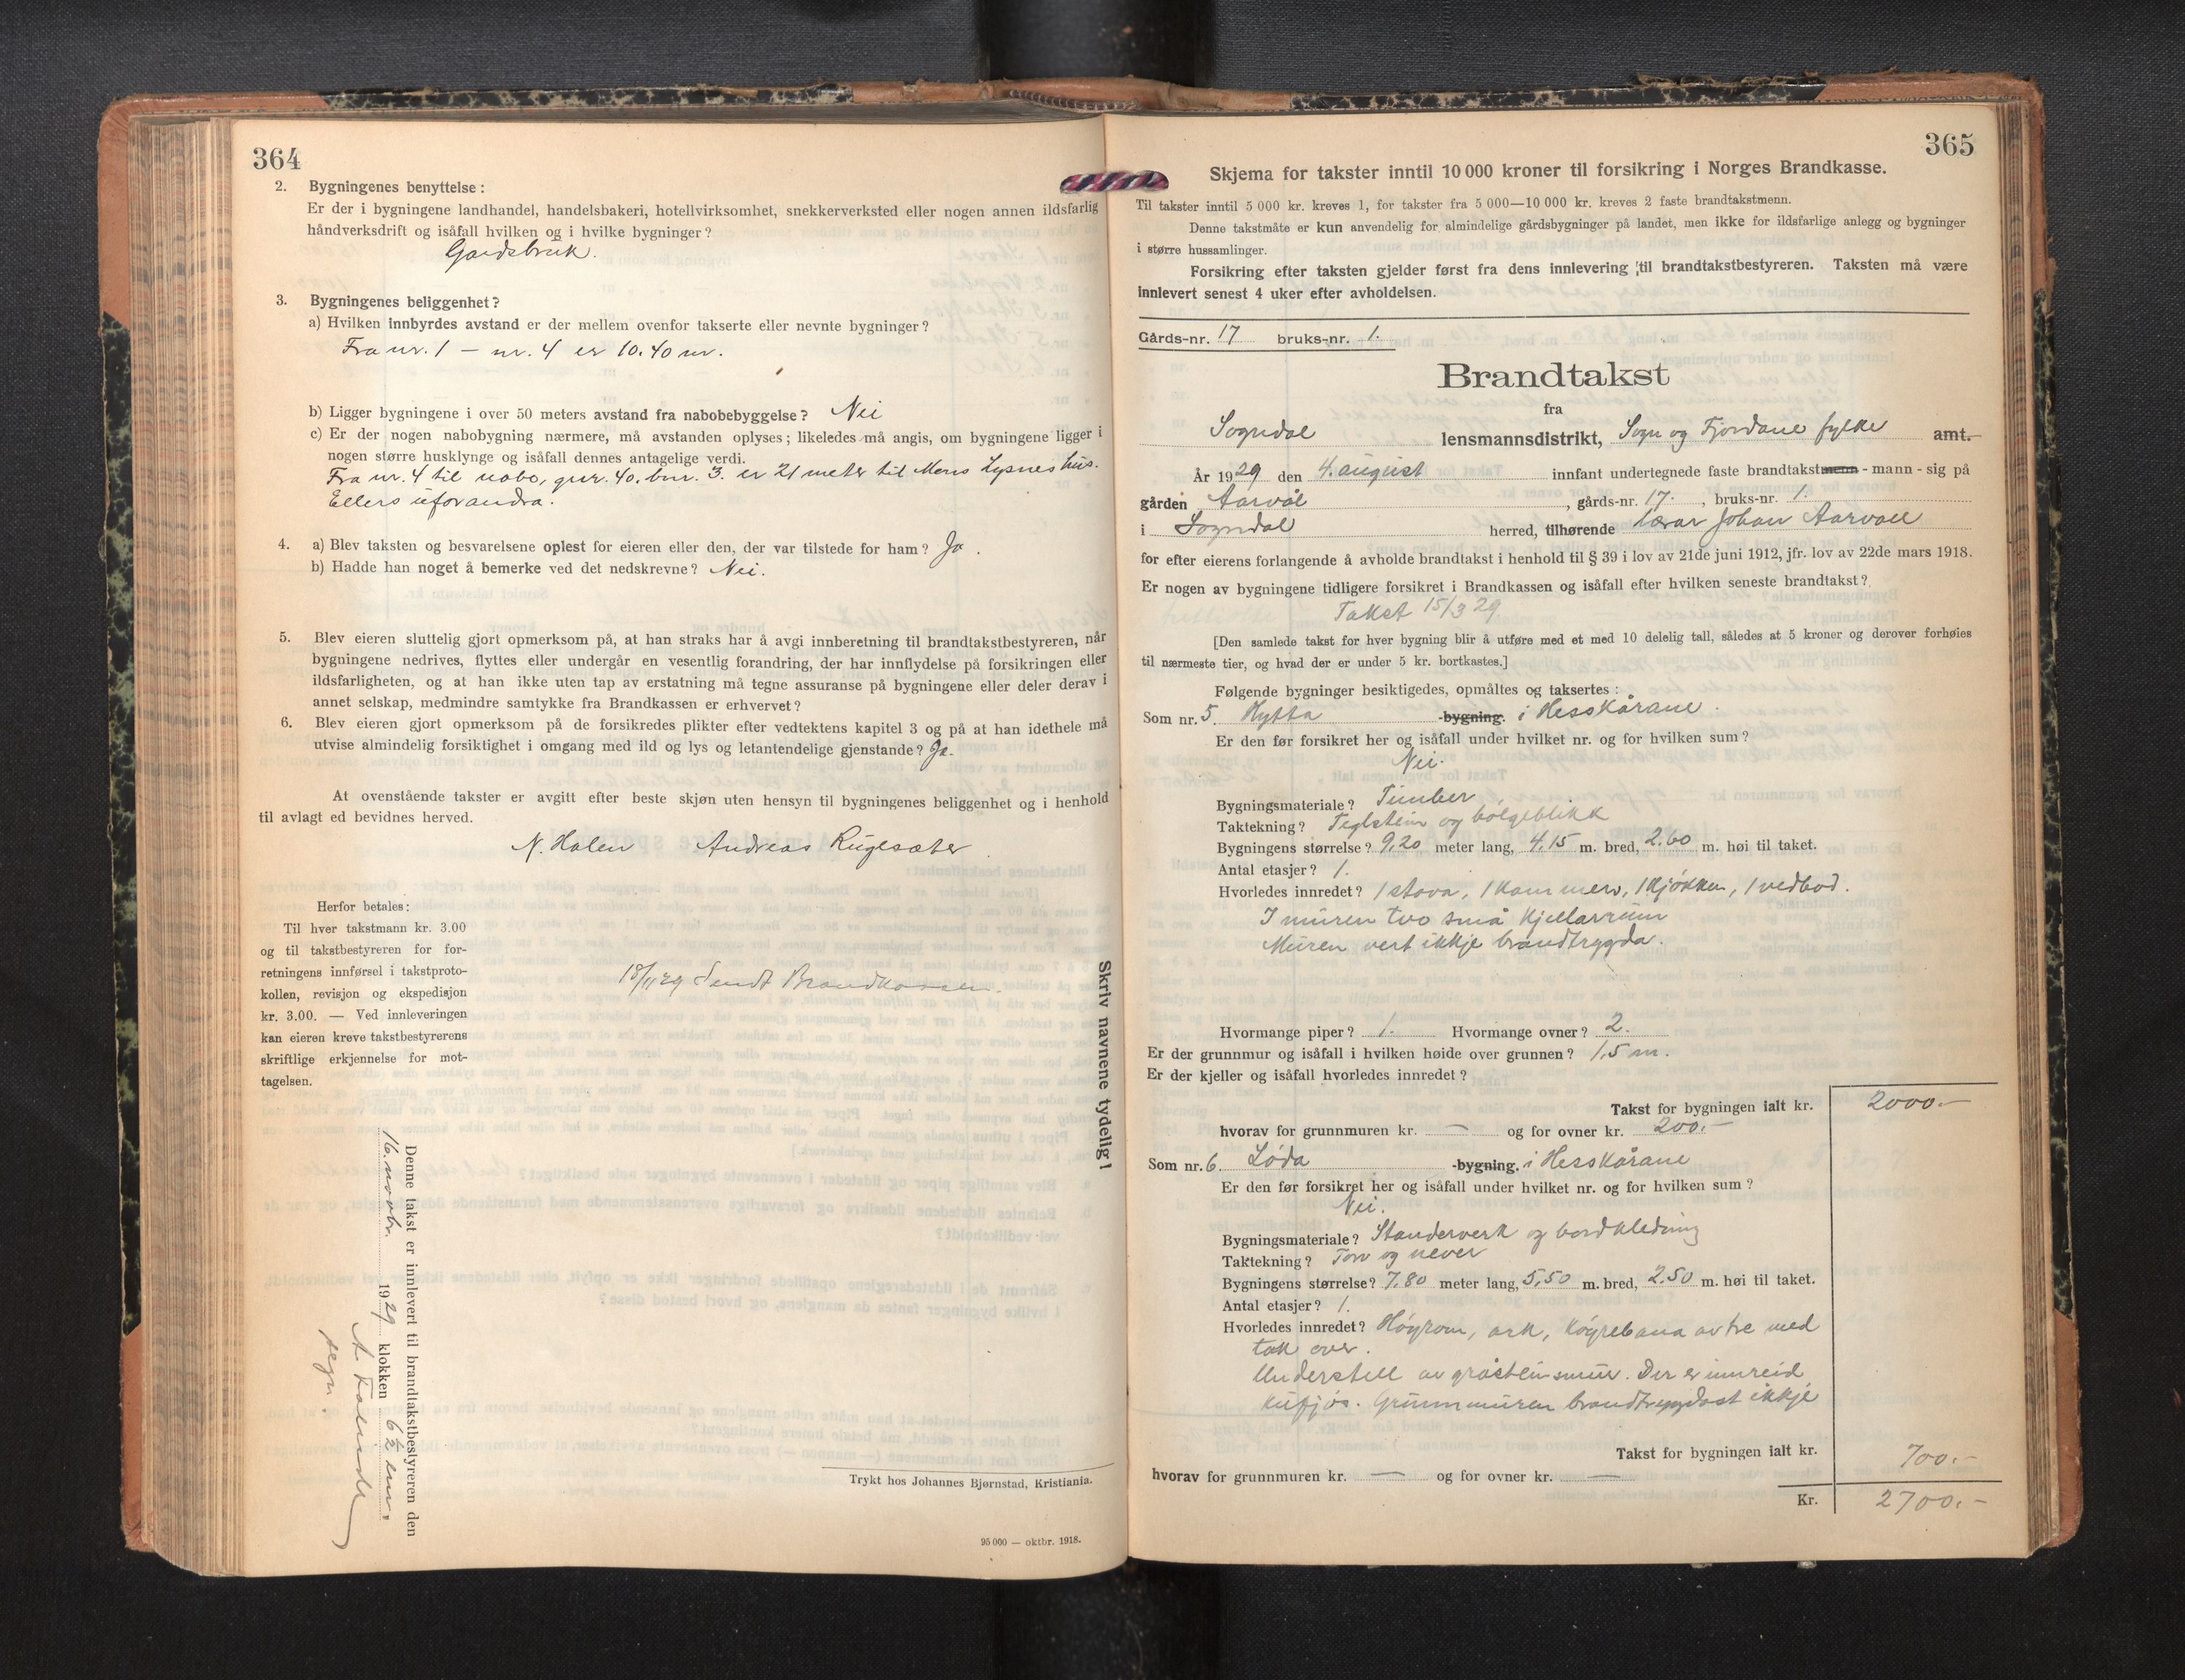 364
2. Bygningenes benyttelse:
Er der i bygningene landhandel, handelsbakeri, hotellvirksomhet, snekkerverksted eller nogen annen ildsfarlig
håndverksdrift og isåfall hvilken og i hvilke bygninger?
Gardsbruk.
3. Bygningenes beliggenhet?
a) Hvilken innbyrdes avstand er der mellem ovenfor takserte eller nevnte bygninger?
Fra nr. 1 — nr. 4 er 10.40 m.
b) Ligger bygningene i over 50 meters avstand fra nabobebyggelse? Nei
c) Er der nogen nabobygning nærmere, må avstanden oplyses; likeledes må angis, om bygningene ligger i
nogen større husklynge og isåfall dennes antagelige verdi.
Fra nr. 4 til nabo, gnr. 40. bnr. 3. er 21 meter til Mons Lysnes hus.
Ellers uforandra.
4. a) Blev taksten og besvarelsene oplest for eieren eller den, der var tilstede for ham? Ja.
b) Hadde han noget å bemerke ved det nedskrevne? Nei.
5. Blev eieren sluttelig gjort opmerksom på, at han straks har å avgi innberetning til brandtakstbestyreren, når
bygningene nedrives, flyttes eller undergår en vesentlig forandring, der har innflydelse på forsikringen eller
ildsfarligheten, og at han ikke uten tap av erstatning må tegne assuranse på bygningene eller deler derav i
annet selskap, medmindre samtykke fra Brandkassen er erhvervet?
6. Blev eieren gjort opmerksom på de forsikredes plikter efter vedtektens kapitel 3 og på at han idethele må
utvise almindelig forsiktighet i omgang med ild og lys og letantendelige gjenstande? Ja.
At ovenstående takster er avgitt efter beste skjøn uten hensyn til bygningenes beliggenhet og i henhold
til avlagt ed bevidnes herved.
N. Halen Andreas Rugesæter
Herfor betales:
Til hver takstmann kr. 3.00
og til takstbestyreren for for-
retningens innførsel i takstproto-
kollen, revisjon og ekspedisjon
kr. 3.00. — Ved innleveringen
kan eieren kreve takstbestyrerens
skriftlige erkjennelse for mot-
tagelsen.
18/11 29 Sendt Brandkassen.
Skriv navnene tydelig!
Denne takst er innlevert til brandtakstbestyreren den
16. novbr. 1929 klokken 6½ em.
Trykt hos Johannes Bjørnstad, Kristiania.
95 000 — oktbr. 1918.
365
Skjema for takster inntil 10 000 kroner til forsikring i Norges Brandkasse.
Til takster inntil 5 000 kr. kreves 1, for takster fra 5 000—10 000 kr. kreves 2 faste brandtakstmenn.
Denne takstmåte er kun anvendelig for almindelige gårdsbygninger på landet, men ikke for ildsfarlige anlegg og bygninger
i større hussamlinger.
Forsikring efter taksten gjelder først fra dens innlevering til brandtakstbestyreren. Taksten må være
innlevert senest 4 uker efter avholdelsen.
Gårds-nr. 17 bruks-nr. 1.
Brandtakst
fra
Sogndal lensmannsdistrikt, Sogn og Fjordane fylke amt.
År 1929 den 4. august innfant undertegnede faste brandtakstmenn - mann - sig på
gården Aarvål, gårds-nr. 17., bruks-nr. 1.
i Sogndal herred, tilhørende Lærar Johan Aarvoll
for efter eierens forlangende å avholde brandtakst i henhold til § 39 i lov av 21de juni 1912, jfr. lov av 22de mars 1918.
Er nogen av bygningene tidligere forsikret i Brandkassen og isåfall efter hvilken seneste brandtakst?
Takst 15/3 29
[Den samlede takst for hver bygning blir å utføre med et med 10 delelig tall, således at 5 kroner og derover forhøies
til nærmeste tier, og hvad der er under 5 kr. bortkastes.]
Følgende bygninger besiktigedes, opmåltes og taksertes:
Som nr. 5. Hytta -bygning. i Hesskårane.
Er den før forsikret her og isåfall under hvilket nr. og for hvilken sum?
Nei.
Bygningsmateriale? Timber
Taktekning? Teglstein og bølgeblikk
Bygningens størrelse? 9,20 meter lang, 4,15 m. bred, 2.60 m. høi til taket.
Antal etasjer? 1.
Hvorledes innredet? 1 stova, 1 kammers, 1 kjøkken, 1 vedbod.
I muren tvo små kjellarrum
Muren vert ikkje brandtrygda.
Hvormange piper? 1. Hvormange ovner? 2.
Er der grunnmur og isåfall i hvilken høide over grunnen? 1,5 m.
Er der kjeller og isåfall hvorledes innredet?
Takst for bygningen ialt kr. 2000.—
hvorav for grunnmuren kr. — og for ovner kr. 200.—
Som nr. 6. Løda -bygning. i Hesskårane
Er den før forsikret her og isåfall under hvilket nr. og for hvilken sum?
Nei.
Bygningsmateriale? Standerverk og bordkledning
Taktekning? Torv og never
Bygningens størrelse? 7,80 meter lang, 5,50 m. bred, 2.50 m. høi til taket.
Antal etasjer? 1.
Hvorledes innredet? Høyrom, ark, køyrebana av tre med
tak over.
Understell av gråsteinsmur. Der er innreid
kufjøs. Grunnmuren brandtrygdast ikkje
Takst for bygningen ialt kr. 700.—
hvorav for grunnmuren kr. — og for ovner kr. —
Kr. 2700.—